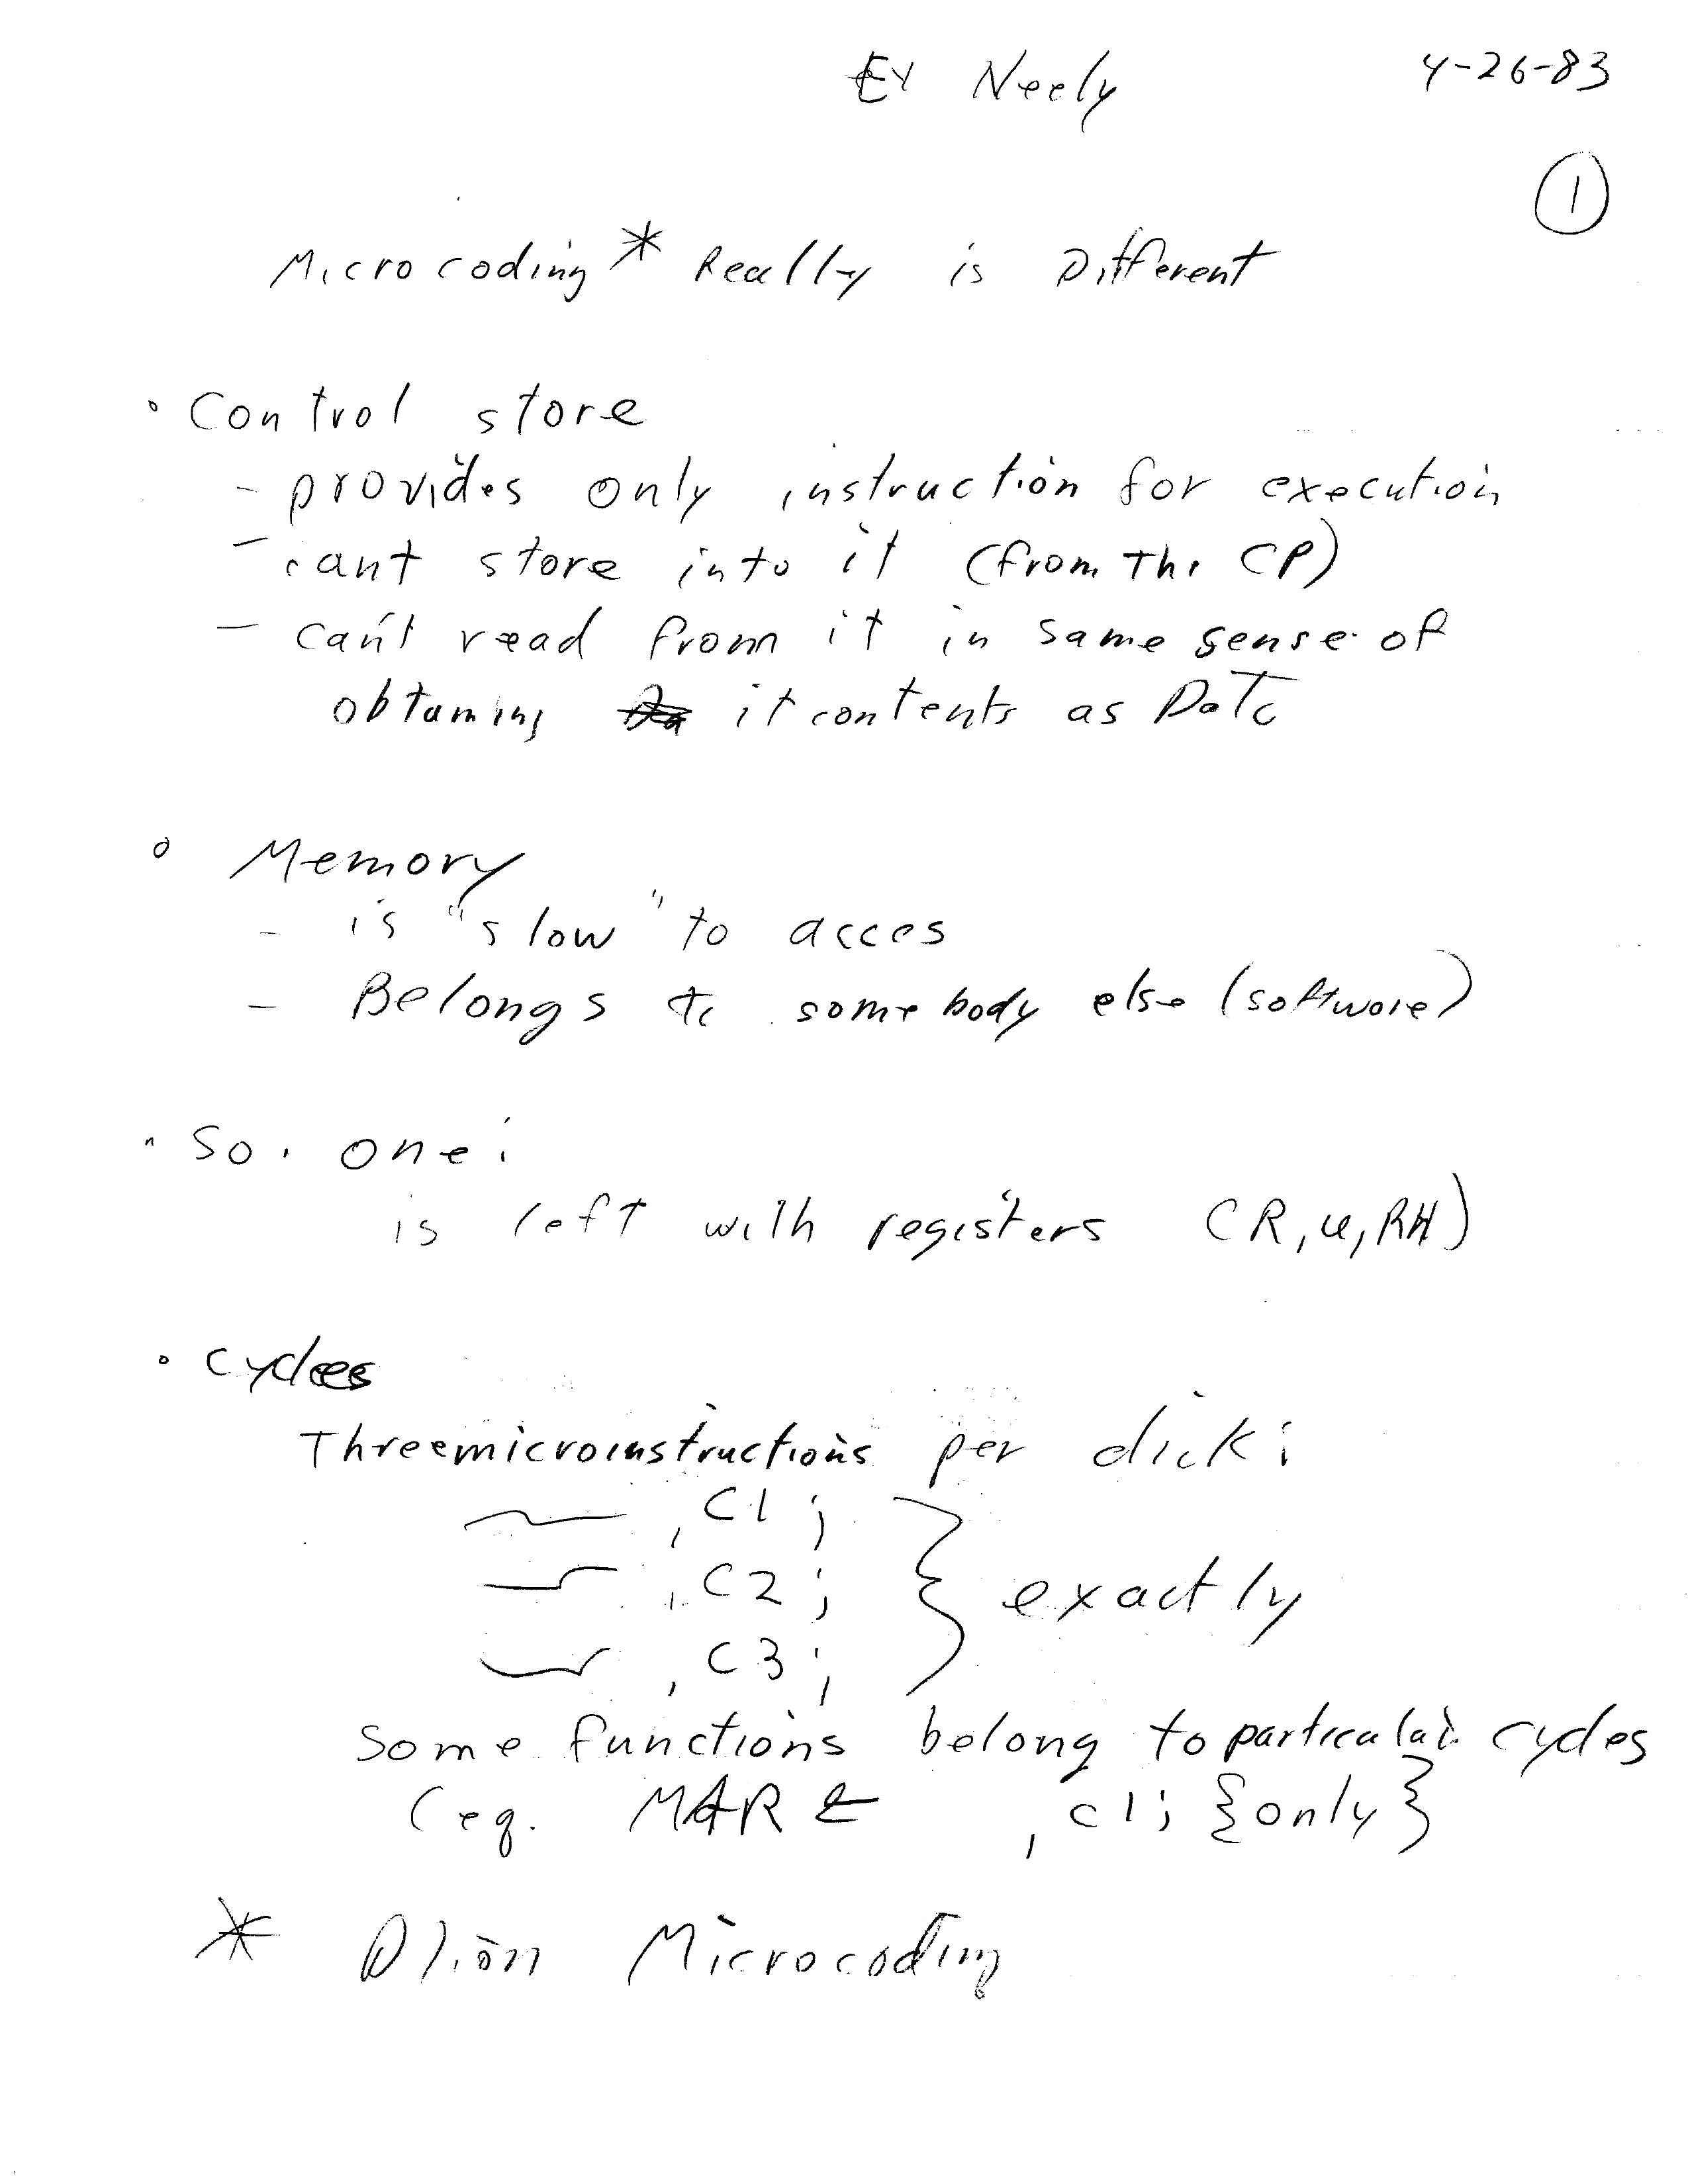 Neely 4-26-83
1
Microcoding * Really is Different
° Control store
- provides only instruction for execution
- cant store into it (from The CP)
- can't read from it in same sense of
obtaining it contents as Data
° Memory
- is "slow" to acces
- Belongs to somebody else (software)
° So. one:
is left with registers (R, U, RH)
° cycles
Three microinstructions per click:
, C1 ;
, C2 ; } exactly
, C3 ;
some functions belong to particular cycles
(eg. MAR ← , c1; {only}
* Dlion Microcoding